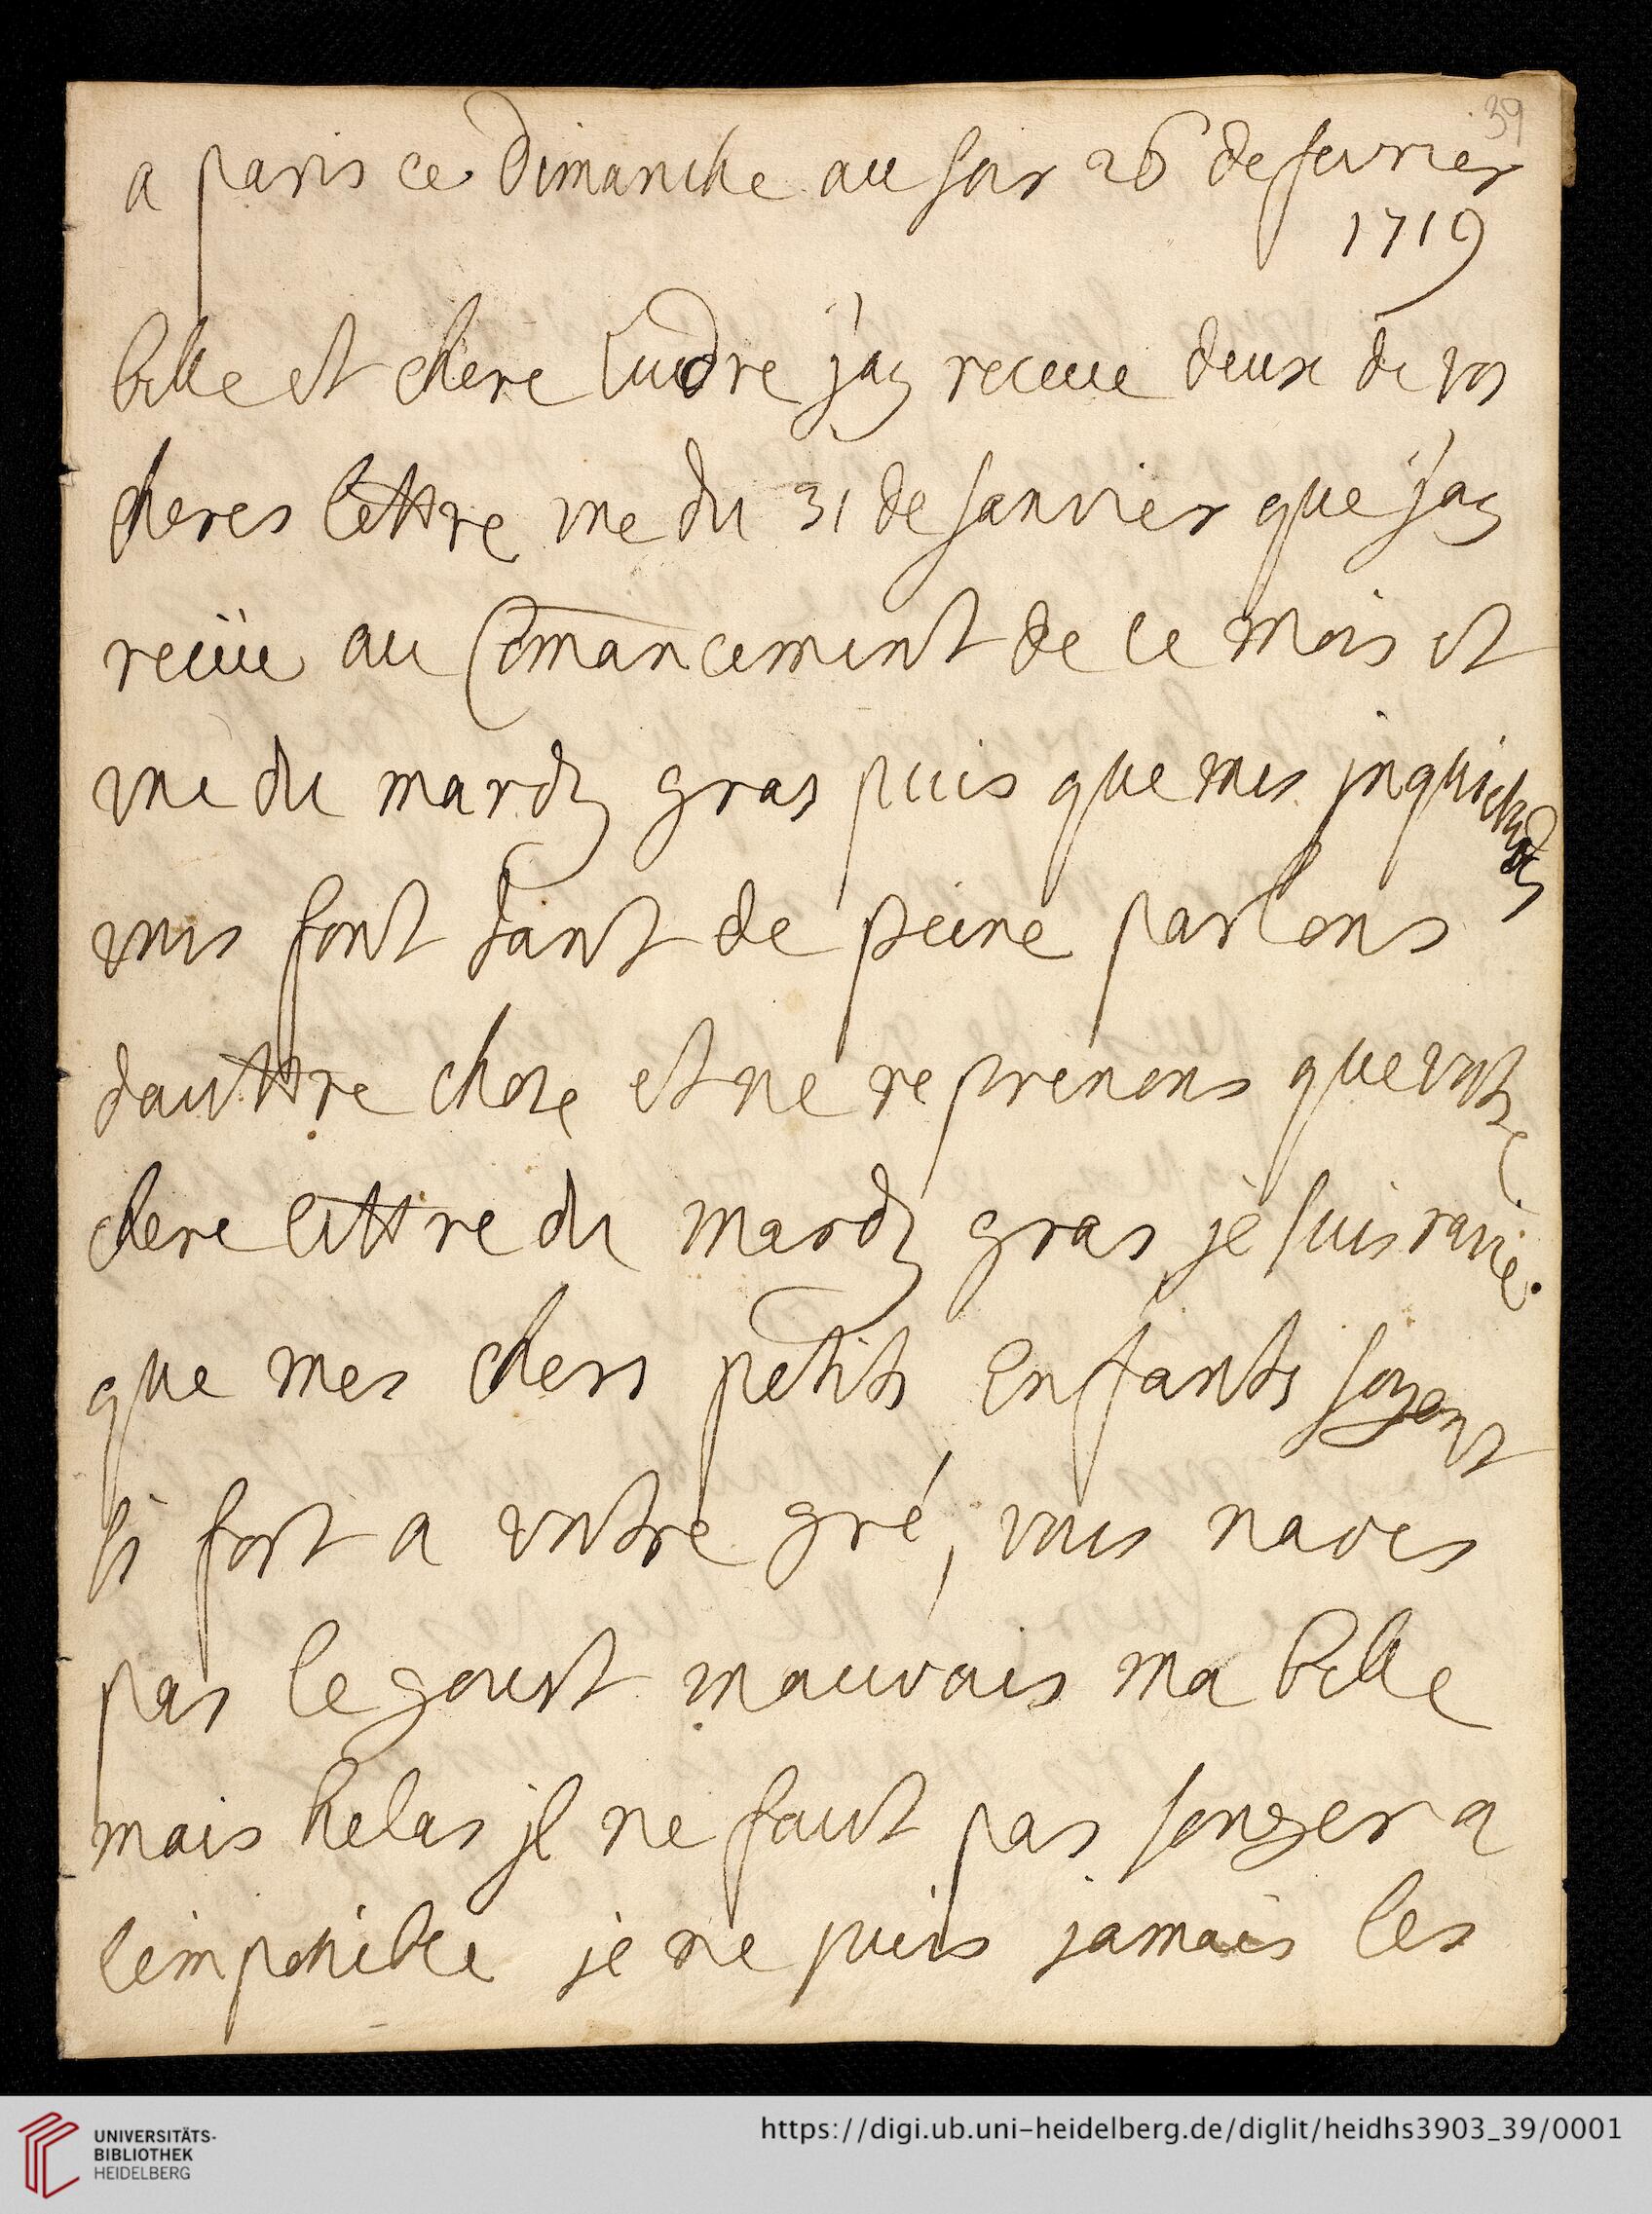 39
a paris ce Dimanche au soir 26 de fevrier
1719
belle et chere Ludre j'ay receue deux de vos
cheres lettre une du 31 de janvier que j'ay
receüe au Comancement de ce mois et
une du mardy gras puis que mes jnquietudes
vous font tant de peine parlons
dauttre chose et ne reprenons que vostre
chere lettre du mardy gras je suis ravie
que mes chers petits enffants soyent
si fort a vostre gré, vous naves
pas le goust mauvais ma belle
mais helas jl ne faut pas songer a
l'impossible je ne puis jamais les
UNIVERSITÄTS-
BIBLIOTHEK
HEIDELBERG
https://digi.ub.uni-heidelberg.de/diglit/heidhs3903_39/0001